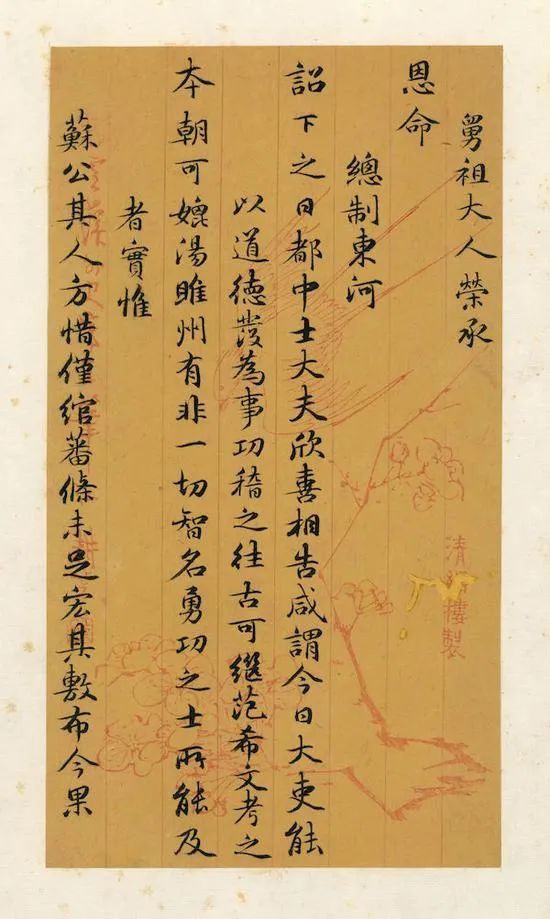 舅祖大人榮承
恩命
總制東河
詔下之日都中士大夫欣喜相告咸謂今日大吏能
以道德發為事功稽之往古可繼范希文考之
本朝可媲湯睢州有非一切智名勇功之士所能及
者實惟
蘇公其人方惜僅綰藩條未足宏其敷布今果
清樓製